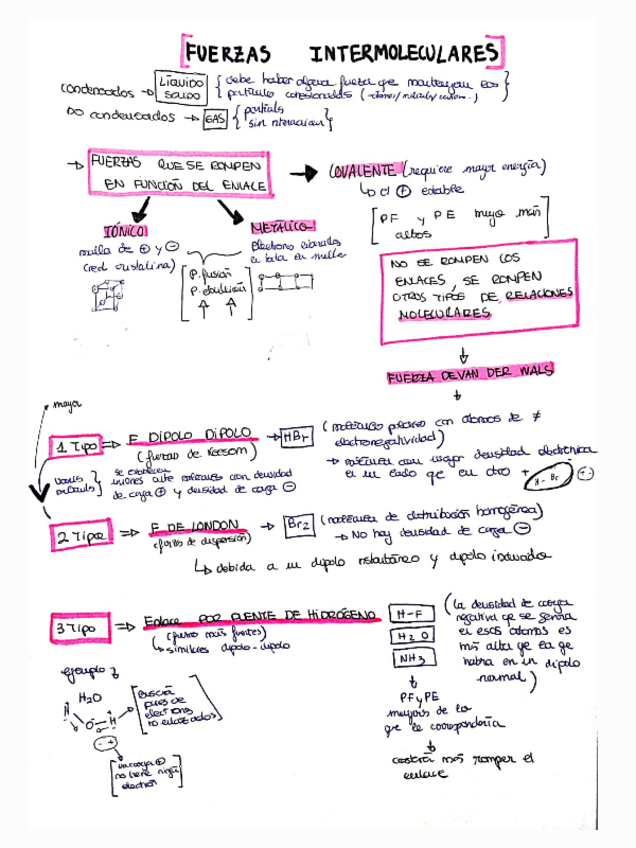 FUERZAS INTERMOLECULARES
condensados → LÍQUIDO SOLIDO { debe haber alguna fuerza que mantengan esas
partículas cohesionadas
NO condensados → GAS { partículas
sin interaccionar }
→ FUERZAS QUE SE ROMPEN
EN FUNCIÓN DEL ENLACE
→ COVALENTE (requiere mayor energía)
↳ el ⊕ estable
[PF y PE muyo más
altos
IÓNICO
malla de ⊕ y ⊖
(red cristalina)
P. fusión
P. ebullición
↑ ↑
METÁLICO
Electrones
NO SE ROMPEN LOS
ENLACES, SE ROMPEN
OTROS TIPOS DE RELACIONES
MOLECULARES.
↓
FUERZA DE VAN DER WALS
mayor
1 Tipo ⇒ F DIPOLO DIPOLO → HBr (moléculas con átomos de ≠
electronegatividad)
(fuerzas de Keesom)
→ molécula con mayor densidad electrónica
en un lado que en otro + H - Br (-)
se establecen
uniones entre moléculas con densidad
de carga ⊕ y densidad de carga ⊖
2 Tipo ⇒ F DE LONDON → Br2 (moléculas de distribución homogénea)
(fuerzas de dispersión) → No hay densidad de carga ⊖
↳ debida a un dipolo instantáneo y dipolo inducido
3 Tipo ⇒ Enlace POR PUENTE DE HIDRÓGENO
(fuerzas más fuertes)
↳ similares dipolo-dipolo
H-F
H2O
NH3
(la densidad de carga
negativa qe se genera
en esos átomos es
más alta qe la qe
habría en un dipolo
normal)
↓
PF y PE
mayores de lo
qe le correspondería
↓
costará más romper el
enlace
ejemplo
H2O
H
O - H
- +
[Buscará
pares de
electrones
no enlazados]
[la carga ⊕
no tiene ningún
electrón]